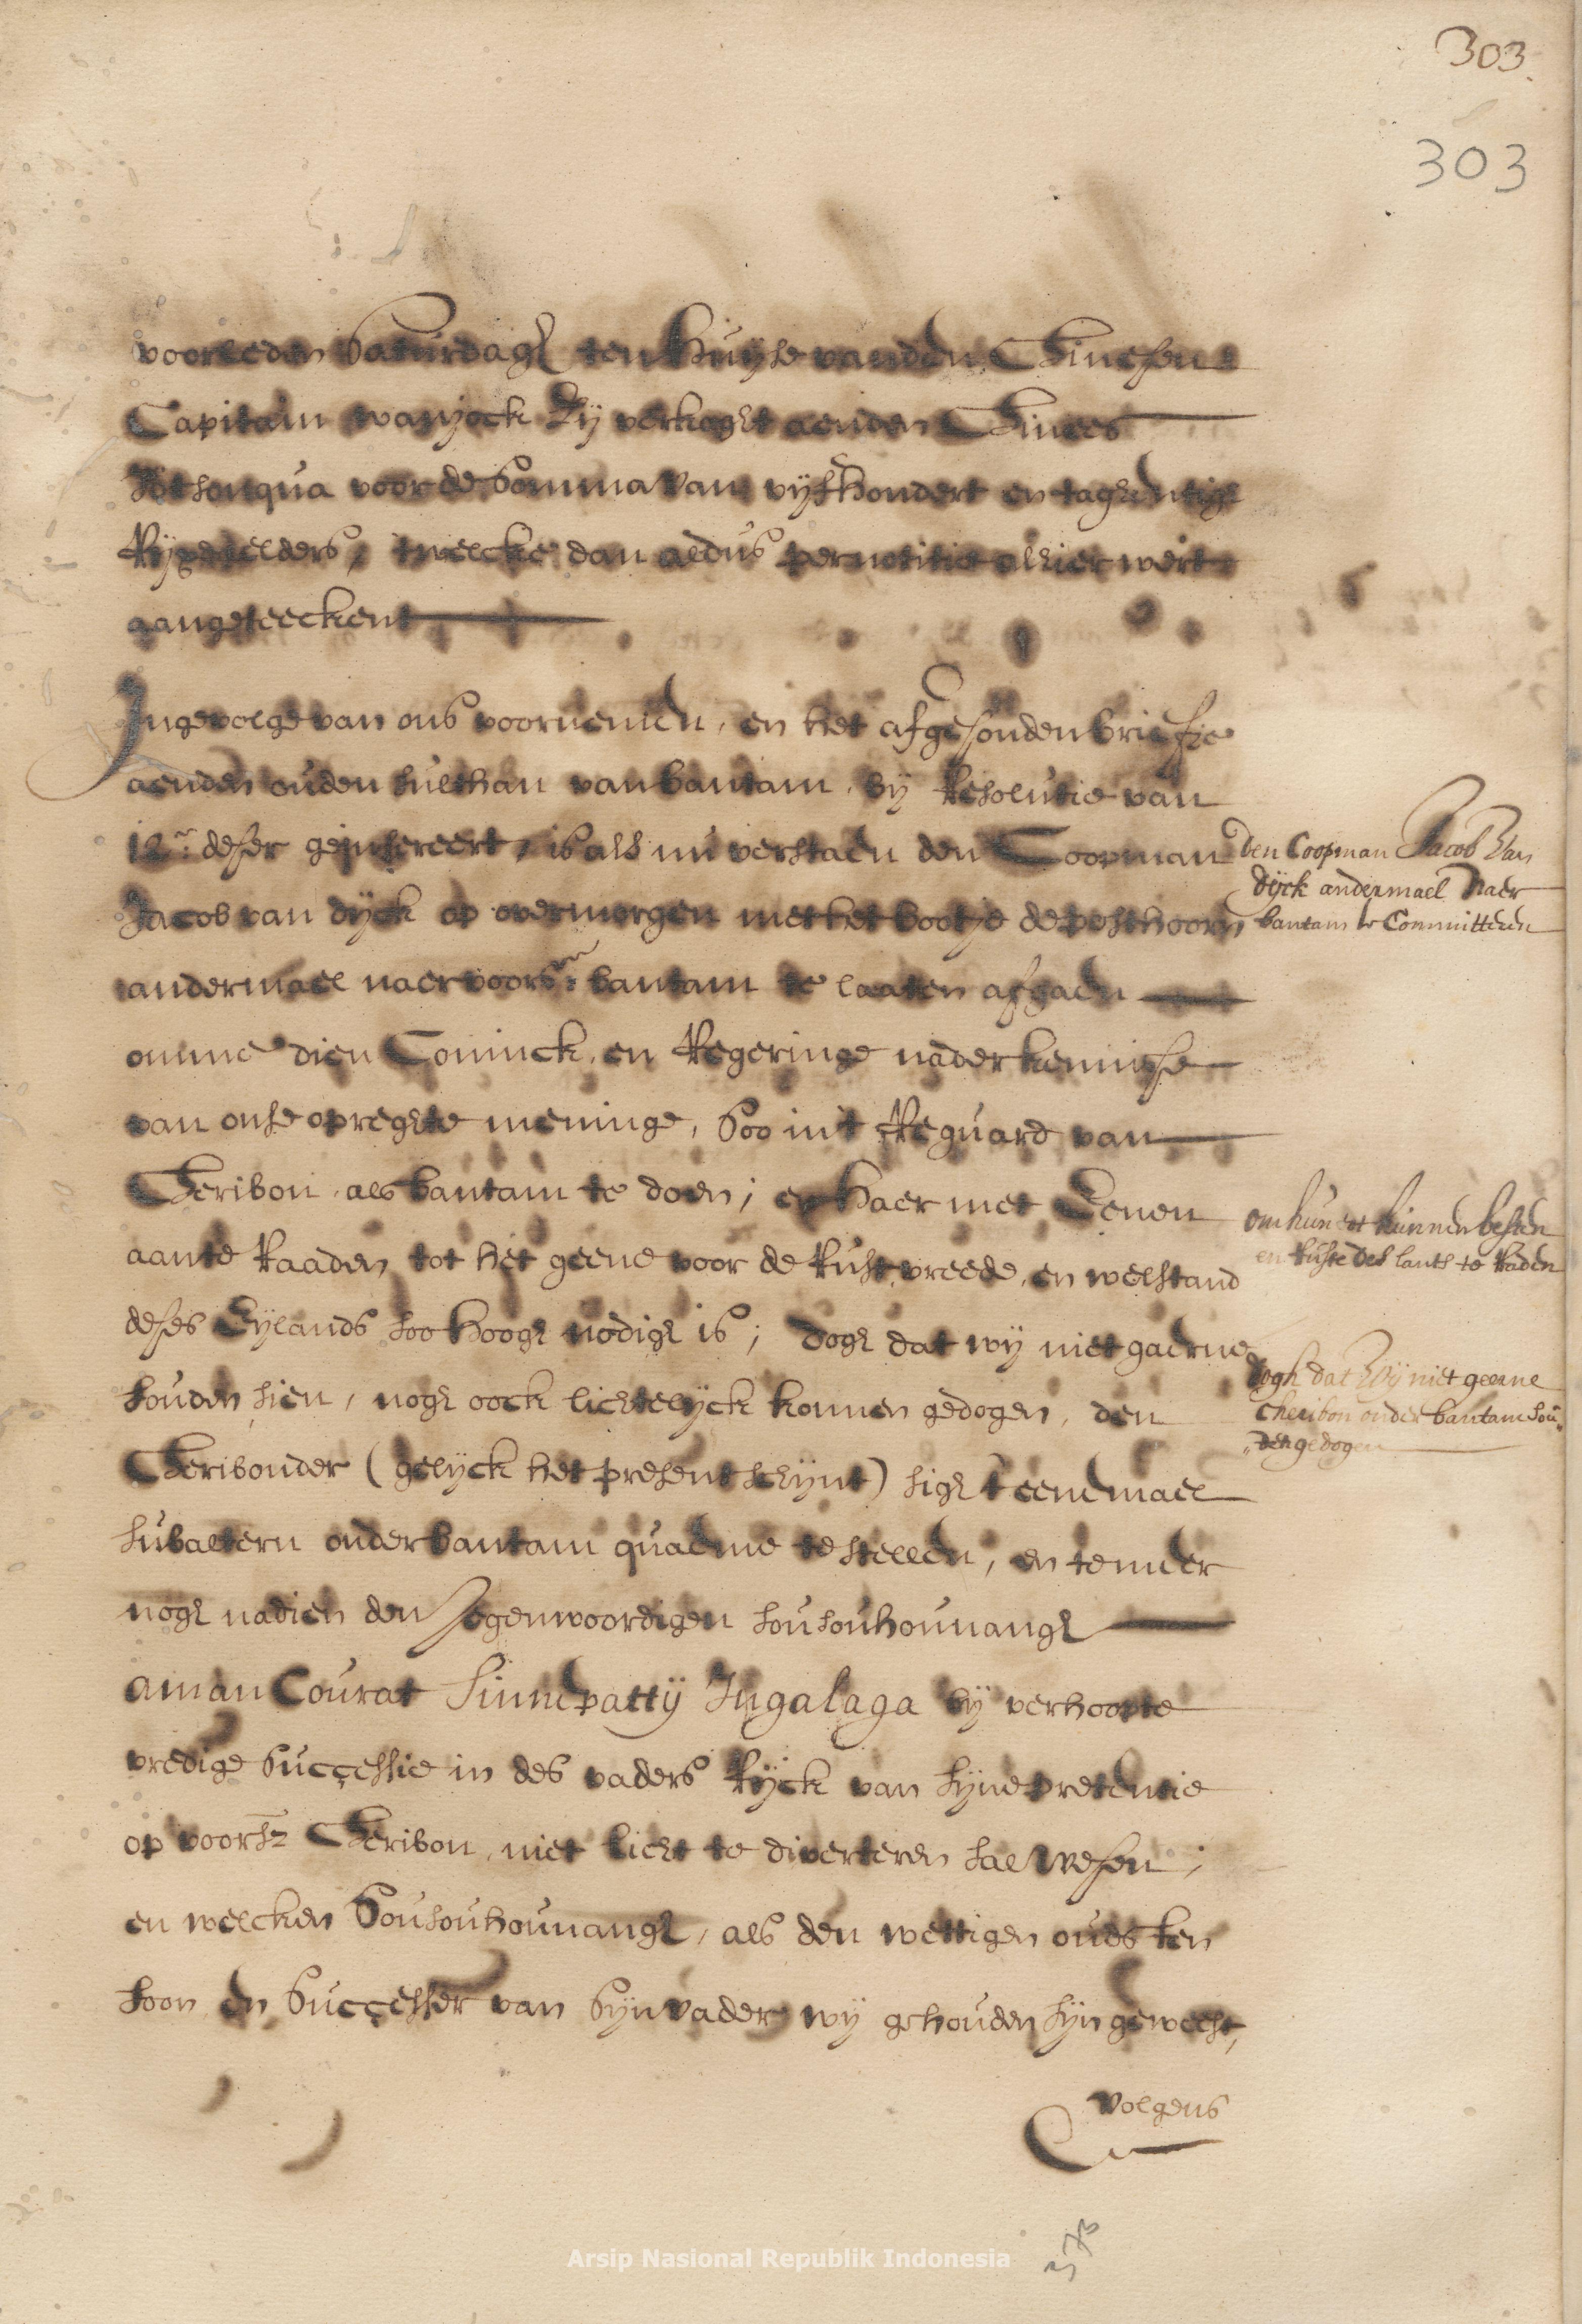 303
303
voorleden Saturdagh ten huyse van den Chinesen
Capitain wanjock zy verkoght aen den Chinees
voor de Somma van vijfhondert en taghentigh
Rijxdaelders, twelcke dan aldus per notitie alhier wert
aangeteeckent
Ingevolge van ons voornemen, en het afgesonden briefje
aenden ouden sulthan van bantam, by Resolutie van
12en deser geinsereert, is als nu verstaen den Coopman
Jacob van dijck op overmorgen met het bootje de posthoorn
andermael naer voorsn bantam te laaten afgaen
omme dien Coninck, en Regeringe nader kennisse
van onse opreghte meninge, Soo in't Reguard van
Cheribon, als bantam te doen; en haer met Eenen
aan te Raaden tot het geene voor de Rust, vreede, en welstand
deses Eylands soo hoogh nodigh is; dogh dat wy niet gaerne
souden sien, nogh oock lichtelyck konnen gedogen, den
Cheribonder (gelyck het present schynt) sigh t'eenemael
subaltern onder bantam quaeme te stellen, en te meer
nogh nadien den Jegenwoordigen sousouhounangh
aman Courat Sinnepatty Ingalaga by verhoopte
vredige Successie in des vaders Ryck van syne pretentie
op voorsz Cheribon, niet licht te diverteren sal wesen;
en welcken Sousouhounangh, als den wettigen oudsten
soon en Successer van Syn vader wy gehouden syn geweest,
volgens
den Coopman Jacob Van
dijck andermael Naer
bantam te Committeren
om hun et hunnen besten
en Ruste des lants te Raden
dogh dat Wij niet geerne
Cheribon onder bantam sou„
„den gedogen
Arsip Nasional Republik Indonesia